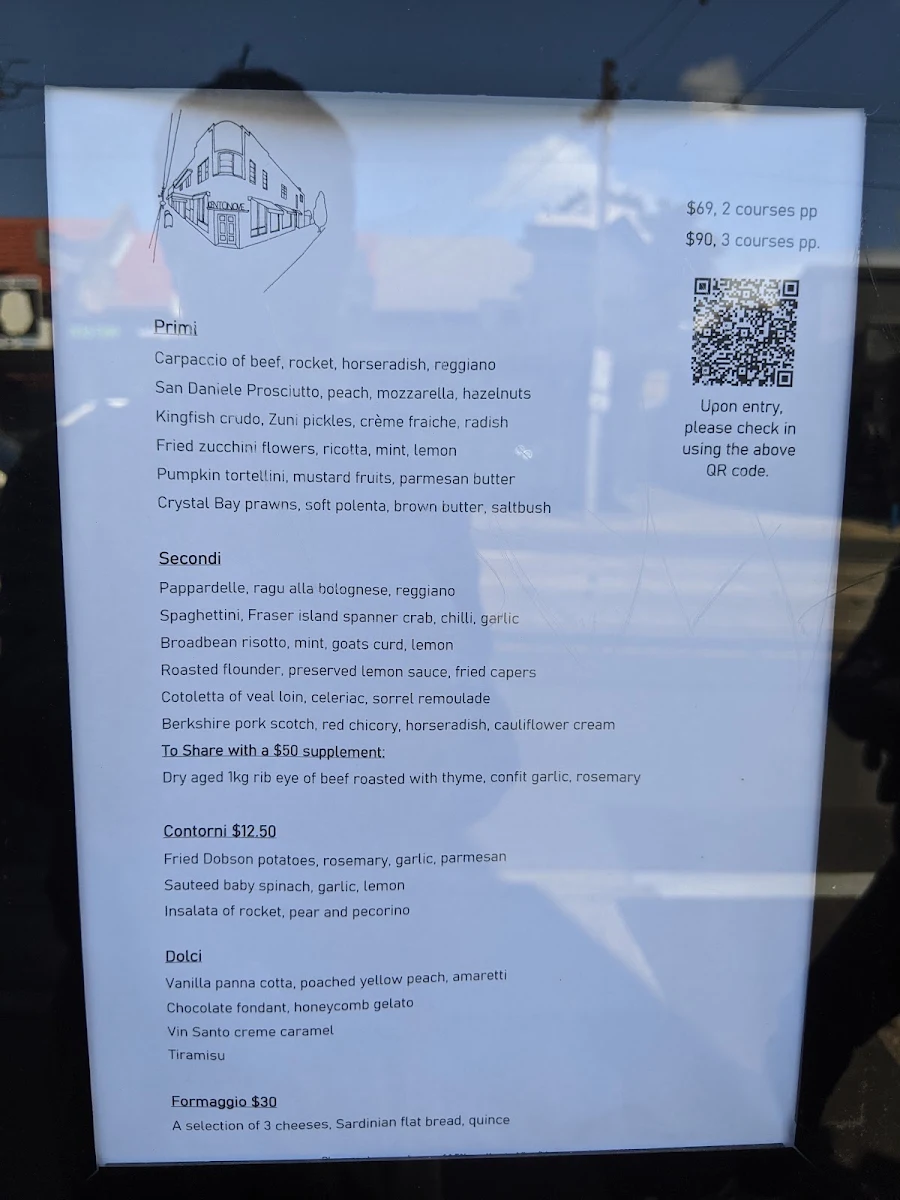 $69, 2 courses pp
$90, 3 courses pp.
Upon entry,
please check in
using the above
QR code.
Primi
Carpaccio of beef, rocket, horseradish, reggiano
San Daniele Prosciutto, peach, mozzarella, hazelnuts
Kingfish crudo, Zuni pickles, crème fraiche, radish
Fried zucchini flowers, ricotta, mint, lemon
Pumpkin tortellini, mustard fruits, parmesan butter
Crystal Bay prawns, soft polenta, brown butter, saltbush
Secondi
Pappardelle, ragu alla bolognese, reggiano
Spaghettini, Fraser island spanner crab, chilli, garlic
Broadbean risotto, mint, goats curd, lemon
Roasted flounder, preserved lemon sauce, fried capers
Cotoletta of veal loin, celeriac, sorrel remoulade
Berkshire pork scotch, red chicory, horseradish, cauliflower cream
To Share with a $50 supplement:
Dry aged 1kg rib eye of beef roasted with thyme, confit garlic, rosemary
Contorni $12.50
Fried Dobson potatoes, rosemary, garlic, parmesan
Sauteed baby spinach, garlic, lemon
Insalata of rocket, pear and pecorino
Dolci
Vanilla panna cotta, poached yellow peach, amaretti
Chocolate fondant, honeycomb gelato
Vin Santo creme caramel
Tiramisu
Formaggio $30
A selection of 3 cheeses, Sardinian flat bread, quince